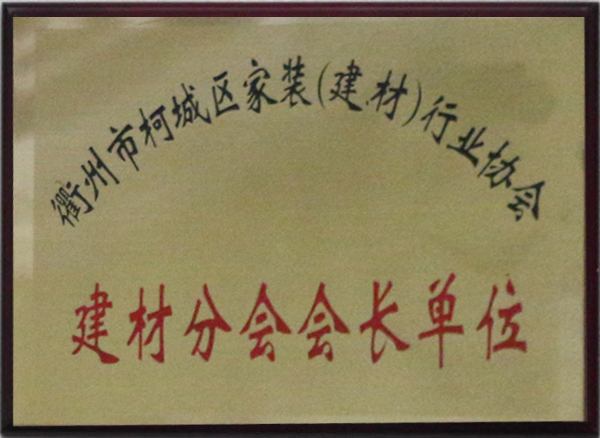 衢州市柯城区家装(建材)行业协会
建材分会会长单位